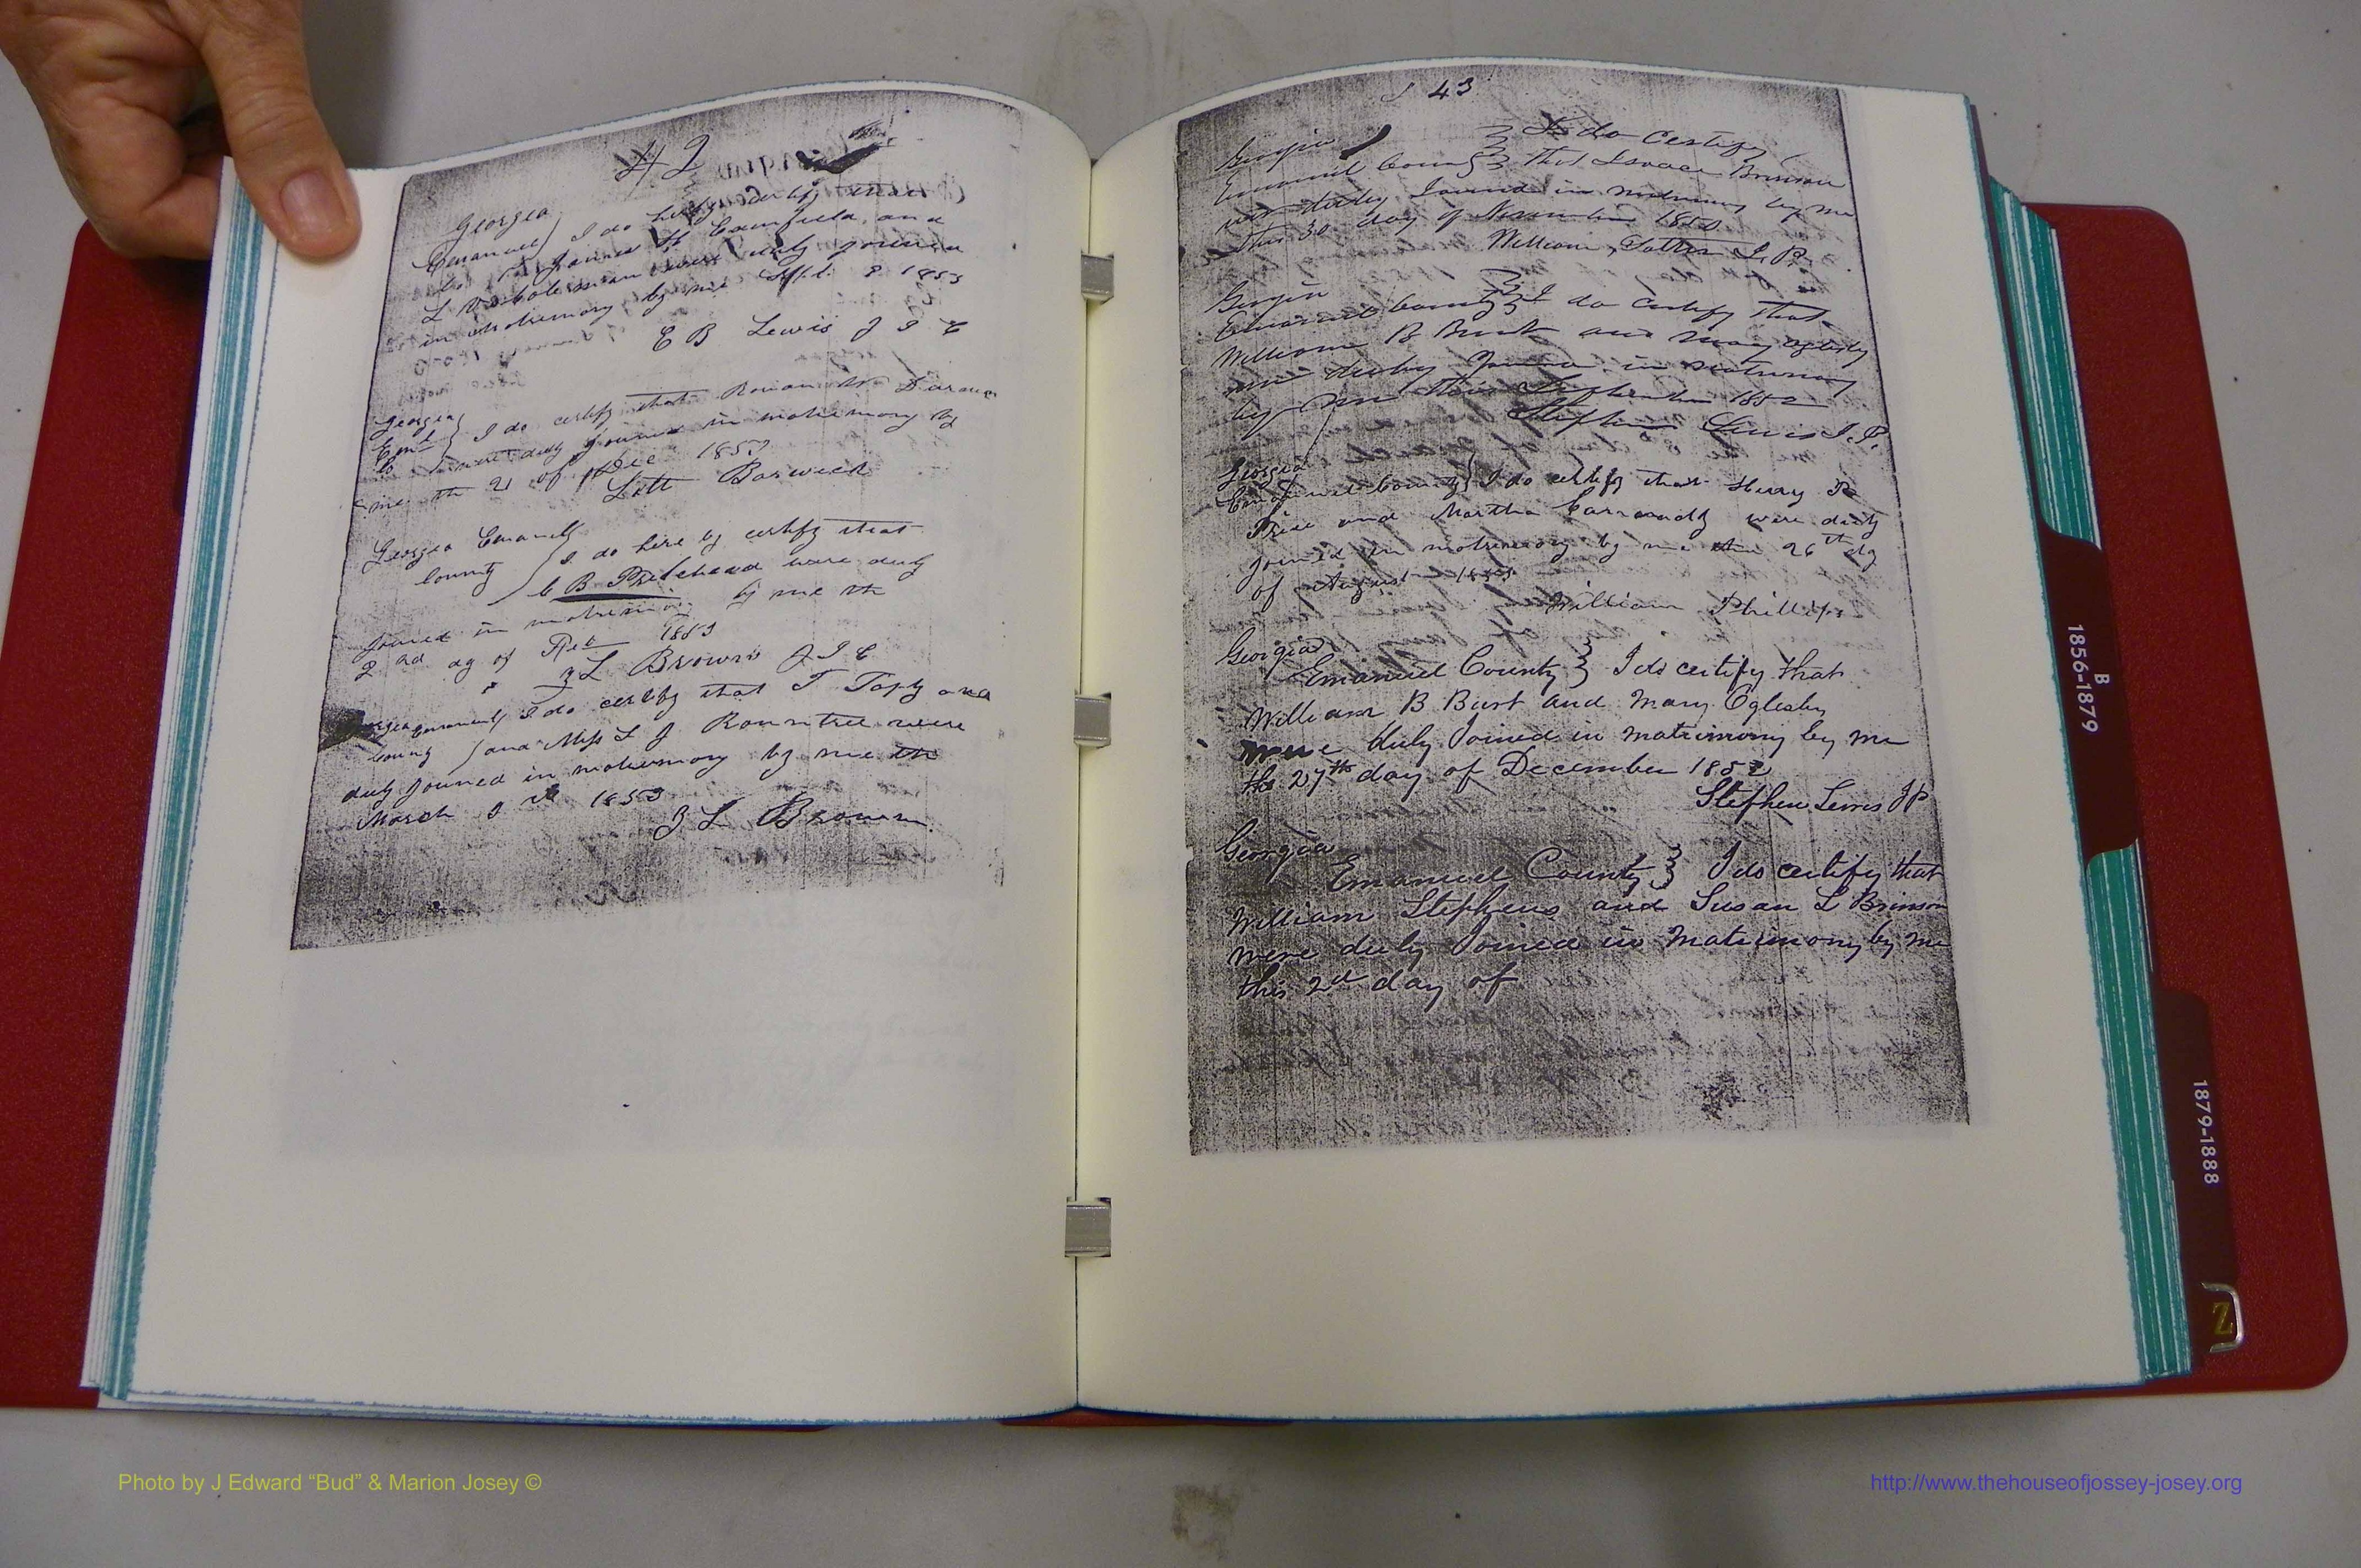 42
Georgia
Emanuel I do certify that
Co James H and
L were duly joined
in matrimony by me Sept 8 1853
E B Lewis J I C
Georgia
Eml I do certify that
Co were duly joined in matrimony by
me the 21 of Dec 1853
Lott Barwick
Georgia Emanuel
County I do here by certify that
C B Pritchard were duly
joined in matrimony by me the
2nd of 1853
L Brown J I C
I do certify that T Taply and
County and Miss L J Rountree were
duly joined in matrimony by me the
March 1853
L Brown
43
Georgia I do certify
Emanuel County that Isaac Brinson
was duly Joined in matrimony by me
this 30 day of November 1850
William J. P.
Georgia
Emanuel County I do certify that
William B Burt and Mary Oglesby
were duly Joined in matrimony
by me this September 1852
Stephen Lewis J. P.
Georgia
Emanuel County I do certify that Henry
Price and Martha were duly
joined in matrimony by me the 26th dy
of August 1853
William Phillips
Georgia
Emanuel County I do certify that
William B Burt and Mary Oglesby
were duly Joined in matrimony by me
the 27th day of December 1852
Stephen Lewis JP
Georgia
Emanuel County I do certify that
William Stephens and Susan L Brinson
were duly Joined in matrimony by me
this 2d day of
B
1856-1879
1879-1888
Z
Photo by J Edward “Bud” & Marion Josey ©
http://www.thehouseofjossey-josey.org